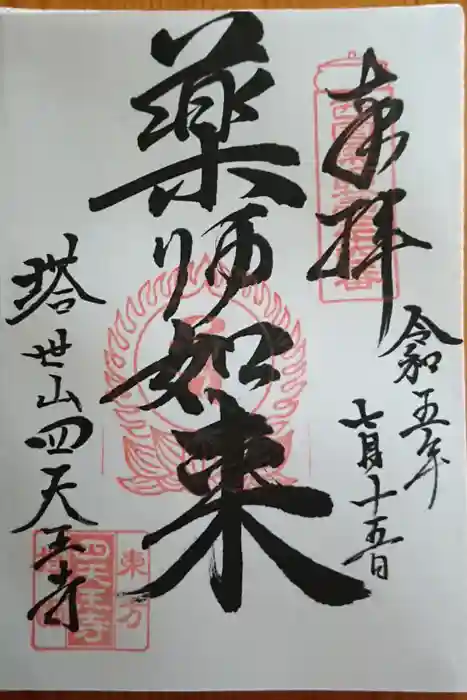 奉拝
令和五年
七月十五日
薬師如来
塔世山四天王寺
東方
四天王寺